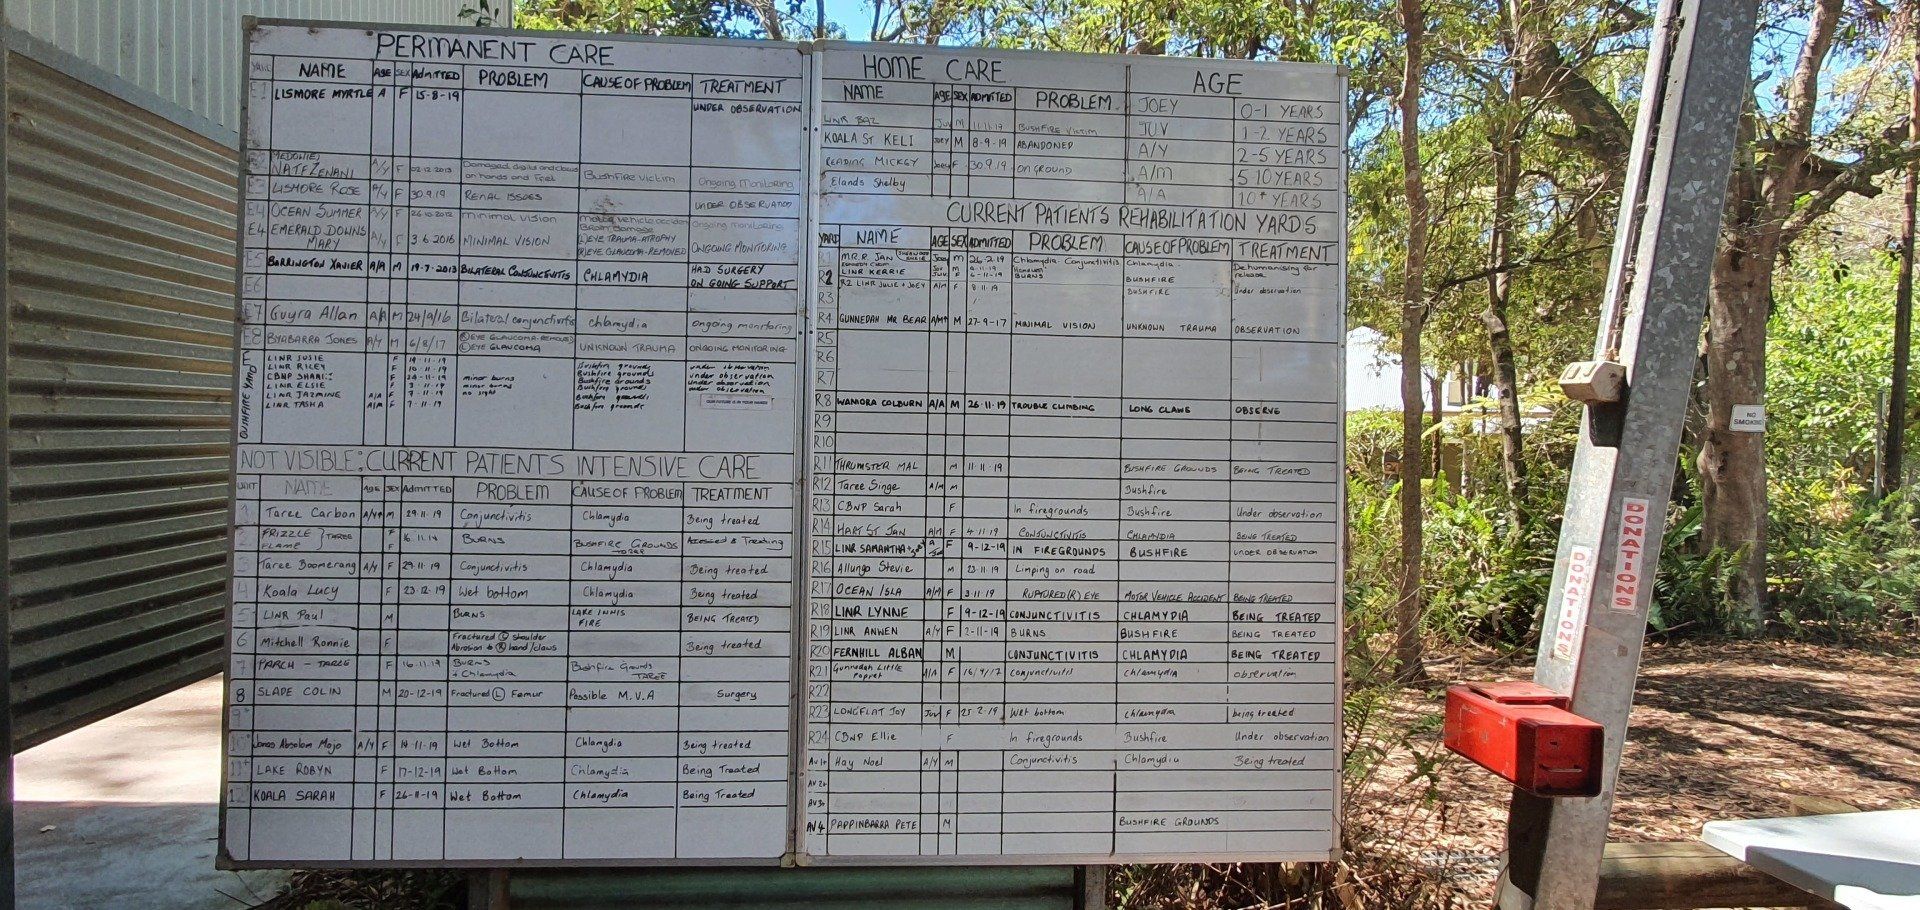 PERMANENT CARE
YARD NAME AGE SEX ADMITTED PROBLEM CAUSE OF PROBLEM TREATMENT
E1 LISMORE MYRTLE A F 15-8-19 UNDER OBSERVATION
E2 NATFZENANI A/Y F 02.12.2013 Damaged digits and claws on hands and Feet Bushfire Victim Ongoing Monitoring
E3 LISMORE ROSE A/Y F 30.9.19 RENAL ISSUES UNDER OBSERVATION
E4 OCEAN SUMMER A/Y F 26.10.2012 minimal vision Motor vehicle accident Brain damage Ongoing monitoring
E4 EMERALD DOWNS MARY A/Y F 3.6.2016 MINIMAL VISION (L)EYE TRAUMA-ATROPHY (R)EYE GLAUCOMA-REMOVED ONGOING MONITORING
E5 BARRINGTON XAVIER A/A M 19-7-2013 BILATERAL CONJUNCTIVITIS CHLAMYDIA HAD SURGERY ON GOING SUPPORT
E6
E7 Guyra Allan A/A M 24/9/16 Bilateral conjunctivitis chlamydia ongoing monitoring
E8 BYABARRA JONES A/Y M 6/8/17 (R)EYE GLAUCOMA-REMOVED (L)EYE GLAUCOMA UNKNOWN TRAUMA ONGOING MONITORING
BUSHFIRE YARD
LINR JOSIE F 19-11-19 Bushfire grounds under observation
LINR RILEY F 10-11-19 Bushfire grounds under observation
CBNP SHARI F 24-11-19 minor burns Bushfire grounds under observation
LINR ELSIE F 3-11-19 minor burns Bushfire grounds under observation
LINR JAZMINE A/A F 7-11-19 no sight Bushfire grounds
LINR TASHA A/M F 7-11-19 Bushfire grounds
OUR FUTURE IS IN YOUR HANDS
NOT VISIBLE: CURRENT PATIENTS INTENSIVE CARE
UNIT NAME AGE SEX ADMITTED PROBLEM CAUSE OF PROBLEM TREATMENT
1 Taree Carbon M 29.11.19 Conjunctivitis Chlamydia Being treated
2 FRIZZLE FLAMP } TAREE F F 16.11.19 BURNS BUSHFIRE GROUNDS TAREE Assessed & Treating
3 Taree Boomerang A/Y F 29.11.19 Conjunctivitis Chlamydia Being treated
4 Koala Lucy F 23.12.19 Wet bottom Chlamydia Being treated
5 LINR Paul M BURNS LAKE INNIS FIRE BEING TREATED
6 Mitchell Ronnie F Fractured (L) shoulder Abrasion to (R) hand/claws Being treated
7 PARCH - TAREE F 16.11.19 BURNS + Chlamydia Bushfire Grounds TAREE
8 SLADE COLIN M 20-12-19 Fractured (L) Femur Possible M.V.A Surgery
9+
10+ Jonas Absolom Mojo A/Y F 19-11-19 Wet Bottom Chlamydia Being treated
11+ LAKE ROBYN F 17-12-19 Wet Bottom Chlamydia Being Treated
12 KOALA SARAH F 26-11-19 Wet Bottom Chlamydia Being Treated
HOME CARE
NAME AGE SEX ADMITTED PROBLEM
LINR BAZ Juv M 11.11.19 BUSHFIRE VICTIM
KOALA St KELI Joey M 8-9-19 ABANDONED
READING MICKEY Joey F 30.9.19 ON GROUND
Elands Shelby
AGE
JOEY 0-1 YEARS
JUV 1-2 YEARS
A/Y 2-5 YEARS
A/M 5-10 YEARS
A/A 10+ YEARS
CURRENT PATIENTS REHABILITATION YARDS
YARD NAME AGE SEX ADMITTED PROBLEM CAUSE OF PROBLEM TREATMENT
R1 MR. R. JAN Joey M 26-2-19 Chlamydia-Conjunctivitis Chlamydia Dehumanising for release
R2 LINR KERRIE Juv F 6-11-19 BURNS BUSHFIRE
R2 LINR JULIE + JOEY A/M F 8.11.19 BUSHFIRE Under observation
R3
R4 GUNNEDAH MR BEAR M 27-9-17 MINIMAL VISION UNKNOWN TRAUMA OBSERVATION
R5
R6
R7
R8 WAMORA COLBURN A/A M 26-11-19 TROUBLE CLIMBING LONG CLAWS OBSERVE
R9
R10
R11 THRUMSTER MAL M 11-11-19 BUSHFIRE GROUNDS BEING TREATED
R12 Taree Singe A/M M Bushfire
R13 CBNP Sarah F In firegrounds Bushfire Under observation
R14 HART ST JAN A/M F 4-11-19 CONJUNCTIVITIS CHLAMYDIA BEING TREATED
R15 LINR SAMANTHA + A F 9-12-19 IN FIREGROUNDS BUSHFIRE UNDER OBSERVATION
R16 Allungo Stevie M 23-11-19 Limping on road
R17 OCEAN ISLA A/M F 3-11-19 RUPTURED (R) EYE MOTOR VEHICLE ACCIDENT BEING TREATED
R18 LINR LYNNE F 9-12-19 CONJUNCTIVITIS CHLAMYDIA BEING TREATED
R19 LINR ANWEN A/Y F 2-11-19 BURNS BUSHFIRE BEING TREATED
R20 FERNHILL ALBAN M CONJUNCTIVITIS CHLAMYDIA BEING TREATED
R21 Gunnedah Little Poppet A/A F 16/9/17 conjunctivitis chlamydia observation
R22
R23 LONGFLAT JOY Juv F 25-2-19 Wet bottom chlamydia being treated
R24 CBNP Ellie F In firegrounds Bushfire Under observation
AV1+ Hay Noel A/Y M Conjunctivitis Chlamydia Being treated
AV2+
AV3+
AV4 PAPPINBARRA PETE M BUSHFIRE GROUNDS
NO SMOKING
DONATIONS
DONATIONS